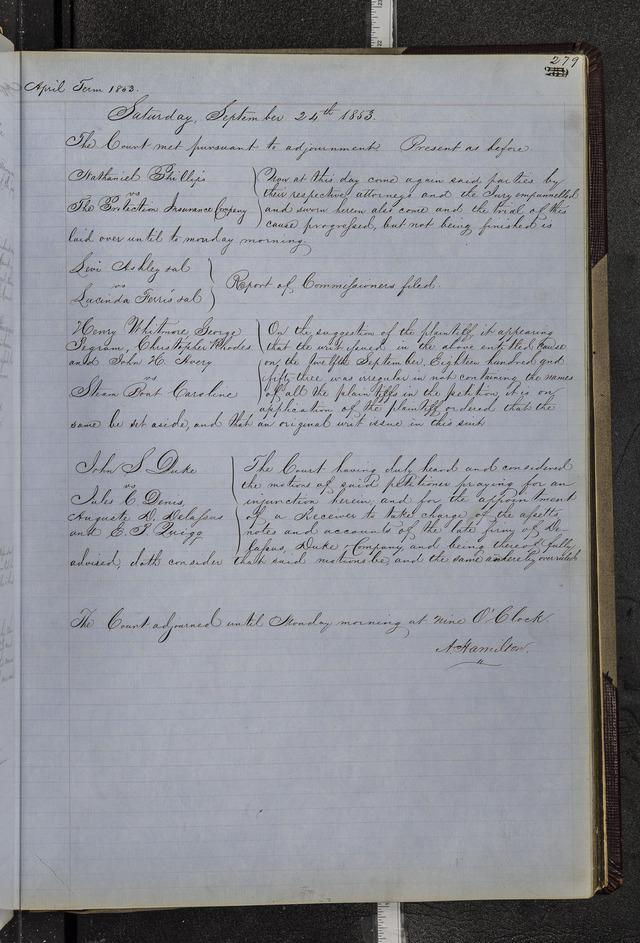 279
April Term 1853.
Saturday, September 24th 1853.
The Court met pursuant to adjournment Present as before
Nathaniel Phillips
vs
The Protection Insurance Company
Now at this day come again said parties by
their respective attorneys and the Jury empannelled
and sworn herein also come and the trial of this
cause progressed, but not being finished is
laid over until to monday morning
Levi Ashley et al
vs
Lucinda Ferris et al
Report of Commissioners filed.
Henry Whitmore George
Ingram, Christopher Rhodes
and John H. Avery
vs
Steam Boat Caroline
On the suggestion of the plaintiff it appearing
that the writ issued in the above entitled cause
on the twelfth September, Eighteen hundred and
fifty three was irregular in not containing the names
of all the plaintiffs in the petition, it is on
application of the plaintiff ordered that the
same be set aside, and that an original writ issue in this suit
John S Duke
vs
Jules C. Denis,
Auguste D. Delassus
and E. P. Quigg
The Court having duly heard and considered
the motions of said petitioner praying for an
injunction herein, and for the appointment
of a Receiver to take charge of the assetts
notes and accounts of the late firm of De-
lassus, Duke & Company, and being thereof fully
advised, doth consider that said motions be, and the same are hereby overruled
The Court adjourned until Monday morning at nine O'Clock.
A. Hamilton.